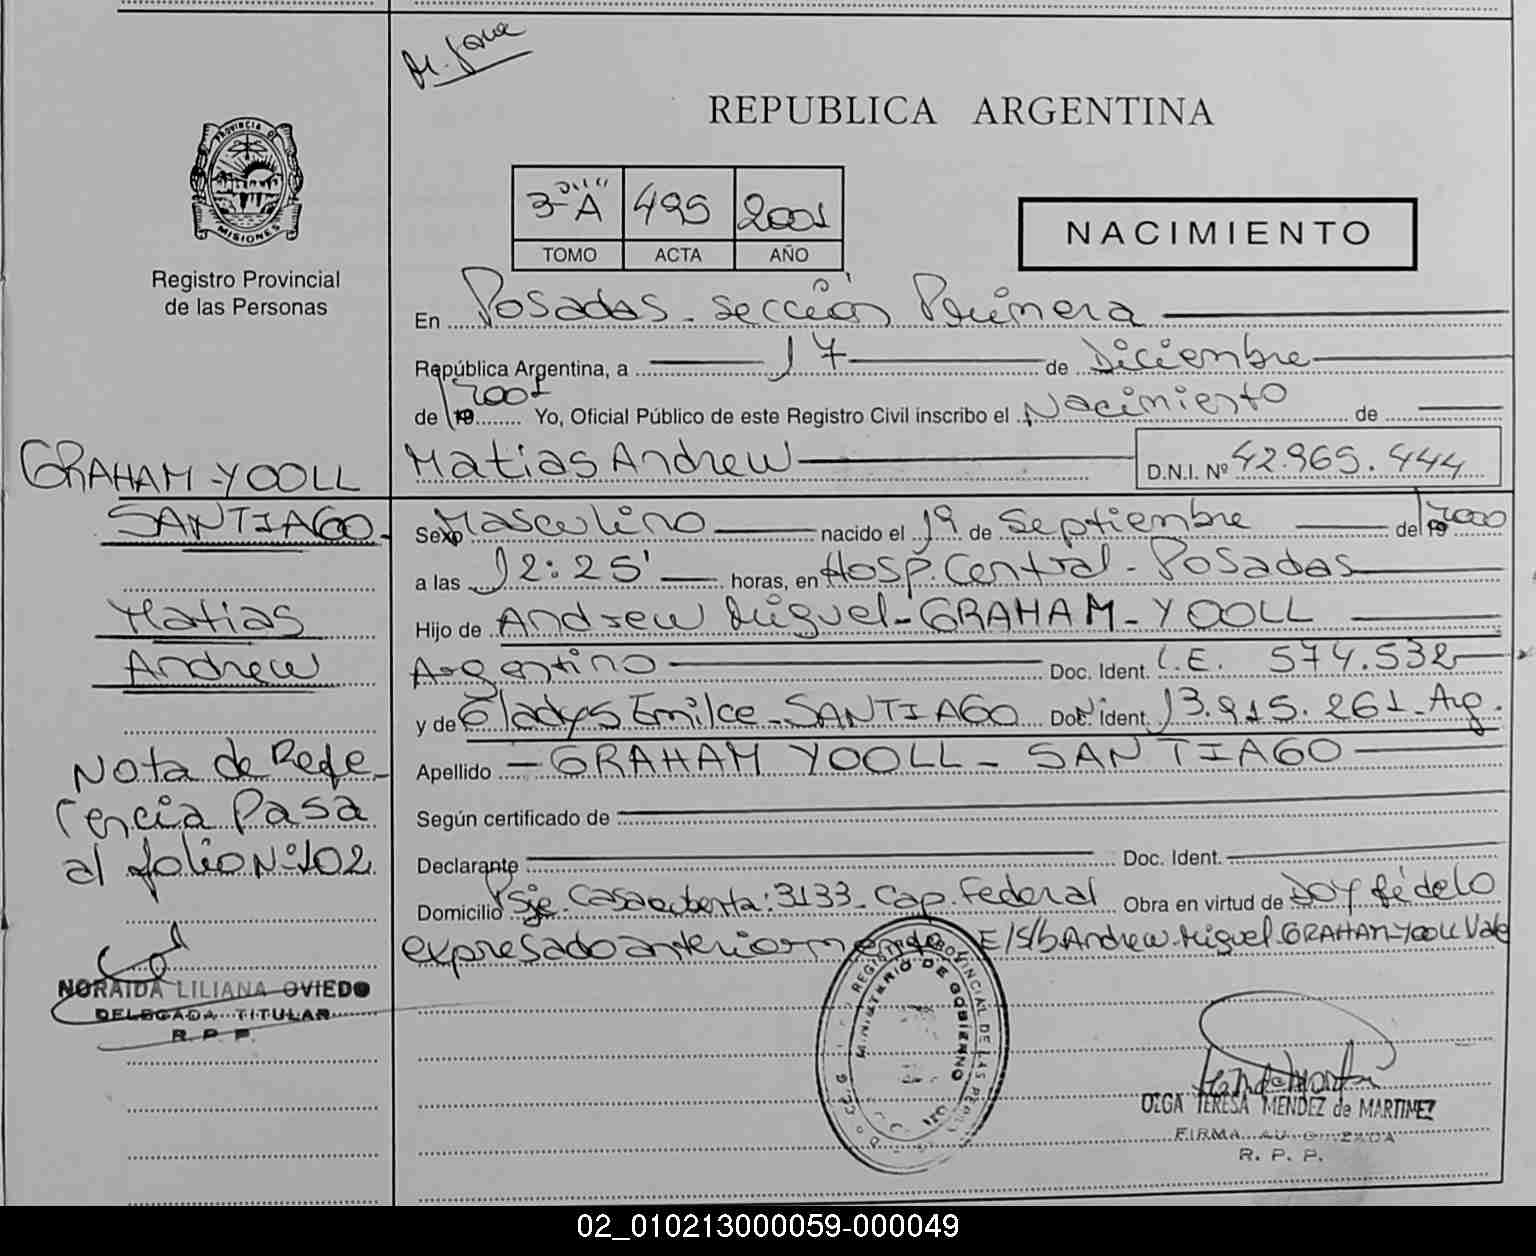 REPUBLICA ARGENTINA
PROVINCIA DE
MISIONES
Registro Provincial
de las Personas
3º "A" 495 2001
TOMO ACTA AÑO
NACIMIENTO
En Posadas - sección Primera
República Argentina, a 17 de Diciembre
de 19 2001 Yo, Oficial Público de este Registro Civil inscribo el Nacimiento de
Matias Andrew D.N.I. Nº 42.965.444
GRAHAM-YOOLL
SANTIAGO
Matias
Andrew
Sexo Masculino nacido el 19 de Septiembre de 19 2000
a las 12:25' horas, en Hosp. Central - Posadas
Hijo de Andrew Miguel - GRAHAM - YOOLL
Argentino Doc. Ident. L.E. 574.532
y de Gladys Emilce - SANTIAGO Doc. Ident. 13.915.261 - Arg.
Apellido - GRAHAM YOOLL - SANTIAGO
Según certificado de
Declarante Doc. Ident.
Domicilio Psje. Casacuberta: 3133 - Cap. Federal Obra en virtud de Doy fé de lo
expresado anteriormente E/S/b. Andrew Miguel GRAHAM-YOOLL Vale
Nota de Refe-
rencia Pasa
al folio Nº 102
NORAIDA LILIANA OVIEDO
DELEGADA TITULAR
R. P. P.
REGISTRO PROVINCIAL DE LAS
MINISTERIO DE GOBIERNO
OLGA TERESA MENDEZ de MARTINEZ
FIRMA
R. P. P.
02_010213000059-000049